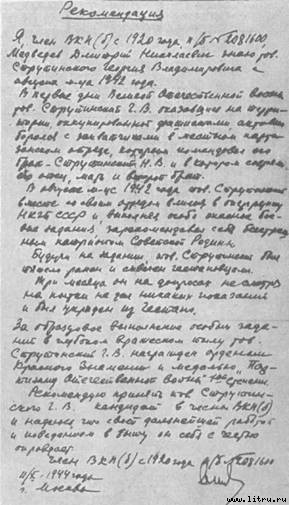 Рекомендация
Я, член ВКП(б) с 1920 года, п/б № 1081600,
Медведев Дмитрий Николаевич знаю тов.
Струтинского Георгия Владимировича с
августа м-ца 1942 года.
В первые дни Великой Отечественной Войны
тов. Струтинский Г.В. оказавшись на терри-
тории, оккупированной фашистами активно
боролся с захватчиками в местном парти-
занском отряде, которым командовал его
брат – Струтинский Н.В. и в котором
отец, мать и второй брат.
В августе м-це 1942 года тов. Струтинский
вместе со своим отрядом влился в опергруппу
НКГБ СССР и, выполняя особо опасные бое-
вые задания, зарекомендовал себя бесстраш-
ным патриотом Советской Родины.
Будучи на задании, тов. Струтинский был
тяжело ранен и схвачен гестаповцами.
Три месяца он на допросах несмотря
на пытки не дал никаких показаний
и был украден из гестапо.
За образцовое выполнение особых зада-
ний в глубоком вражеском тылу тов.
Струтинский Г.В. награжден орденами
Красного Знамени и медалью „Пар-
тизану Отечественной Войны" 1ой степени.
Рекомендую принять тов. Струтин-
ского Г.В. кандидатом в члены ВКП(б)
и надеюсь что своей дальнейшей работой
и поведением в быту он себя с честью
оправдает.
Член ВКП(б) с 1920 года п/б № 1081600
11/X-1944 года
г. Москва
http://www.litru.ru